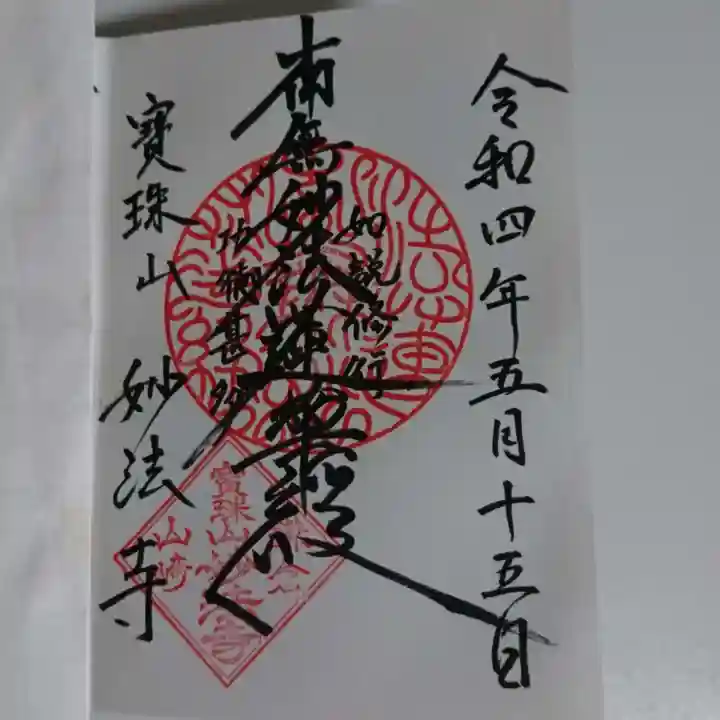 令和四年五月十五日
如説修行
南無妙法蓮華経
功徳甚多
寶珠山 妙法寺
寶珠山妙法寺